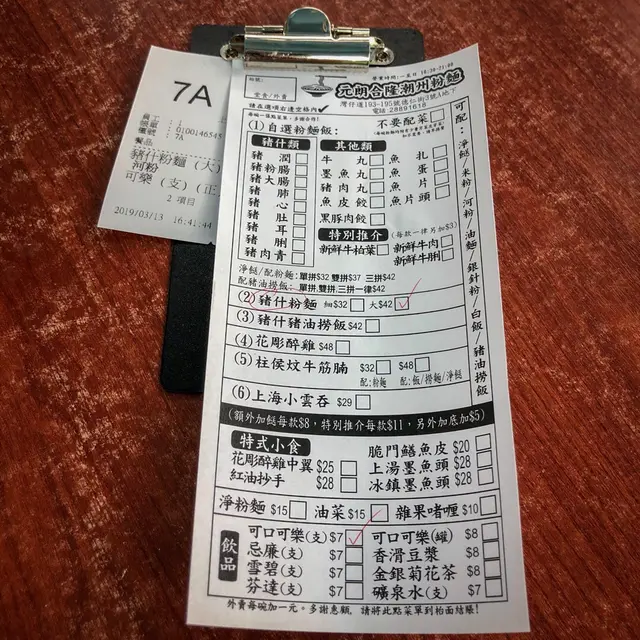 7A
員工 :
檯號 :
編號 : 0100146545
7A
餐品
豬什粉麵 (大)
河粉
可樂 (支) (正
2 項目
2019/03/13 16:41:44
檯號:
堂食/外賣
營業時間:一至日 10:30-21:00
元朗合隆潮州粉麵
灣仔道193-195號德仁街3號A地下
電話:28891618
請在選項右邊空格內✓
每碗一張點菜單，多謝合作!
(1)自選粉麵飯:
不要配菜
豬什類
豬潤
豬粉腸
豬大腸
豬肺
豬心
豬肚
豬耳
豬脷
豬肉青
其他類
牛丸
墨魚丸
豬肉丸
魚皮餃
黑豚肉餃
魚扎
魚蛋
魚片
魚片頭
特別推介 (每款一律另加$3)
新鮮牛柏葉
新鮮牛肉
新鮮牛脷
可配:淨餸/米粉/河粉/油麵/銀針粉/白飯/豬油撈飯
淨餸/配粉麵:單拼$32 雙拼$37 三拼$42
配豬油撈飯:單拼,雙拼,三拼一律$42
(2)豬什粉麵 細$32 大$42 ✓
(3)豬什豬油撈飯$42
(4)花彫醉雞$48
(5)柱侯炆牛筋腩 $32 $48
配:粉麵 配:飯/撈麵/淨餸
(6)上海小雲吞 $29
(額外加餸每款$8，特別推介每款$11，另外加底加$5)
特式小食
花彫醉雞中翼 $25
紅油抄手 $28
脆門鱔魚皮 $20
上湯墨魚頭 $28
冰鎮墨魚頭 $28
淨粉麵 $15 油菜 $15 雜果啫喱 $10
飲品
可口可樂(支) $7 ✓
忌廉(支) $7
雪碧(支) $7
芬達(支) $7
可口可樂(罐) $8
香滑豆漿 $8
金銀菊花茶 $8
礦泉水(支) $7
外賣每碗加一元。多謝惠顧，請將此點菜單到柏面結賬!